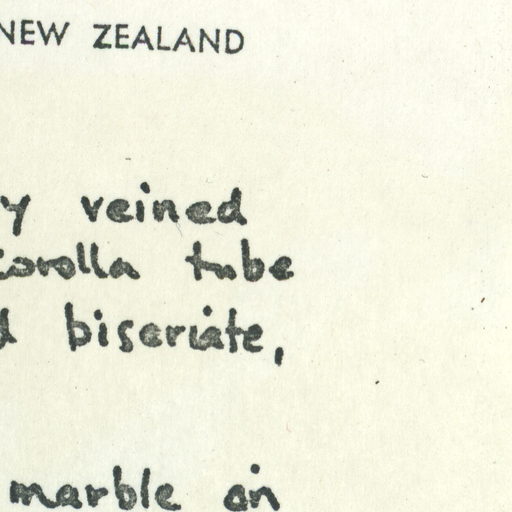 NEW ZEALAND
y veined
corolla tube
d biseriate,
marble on